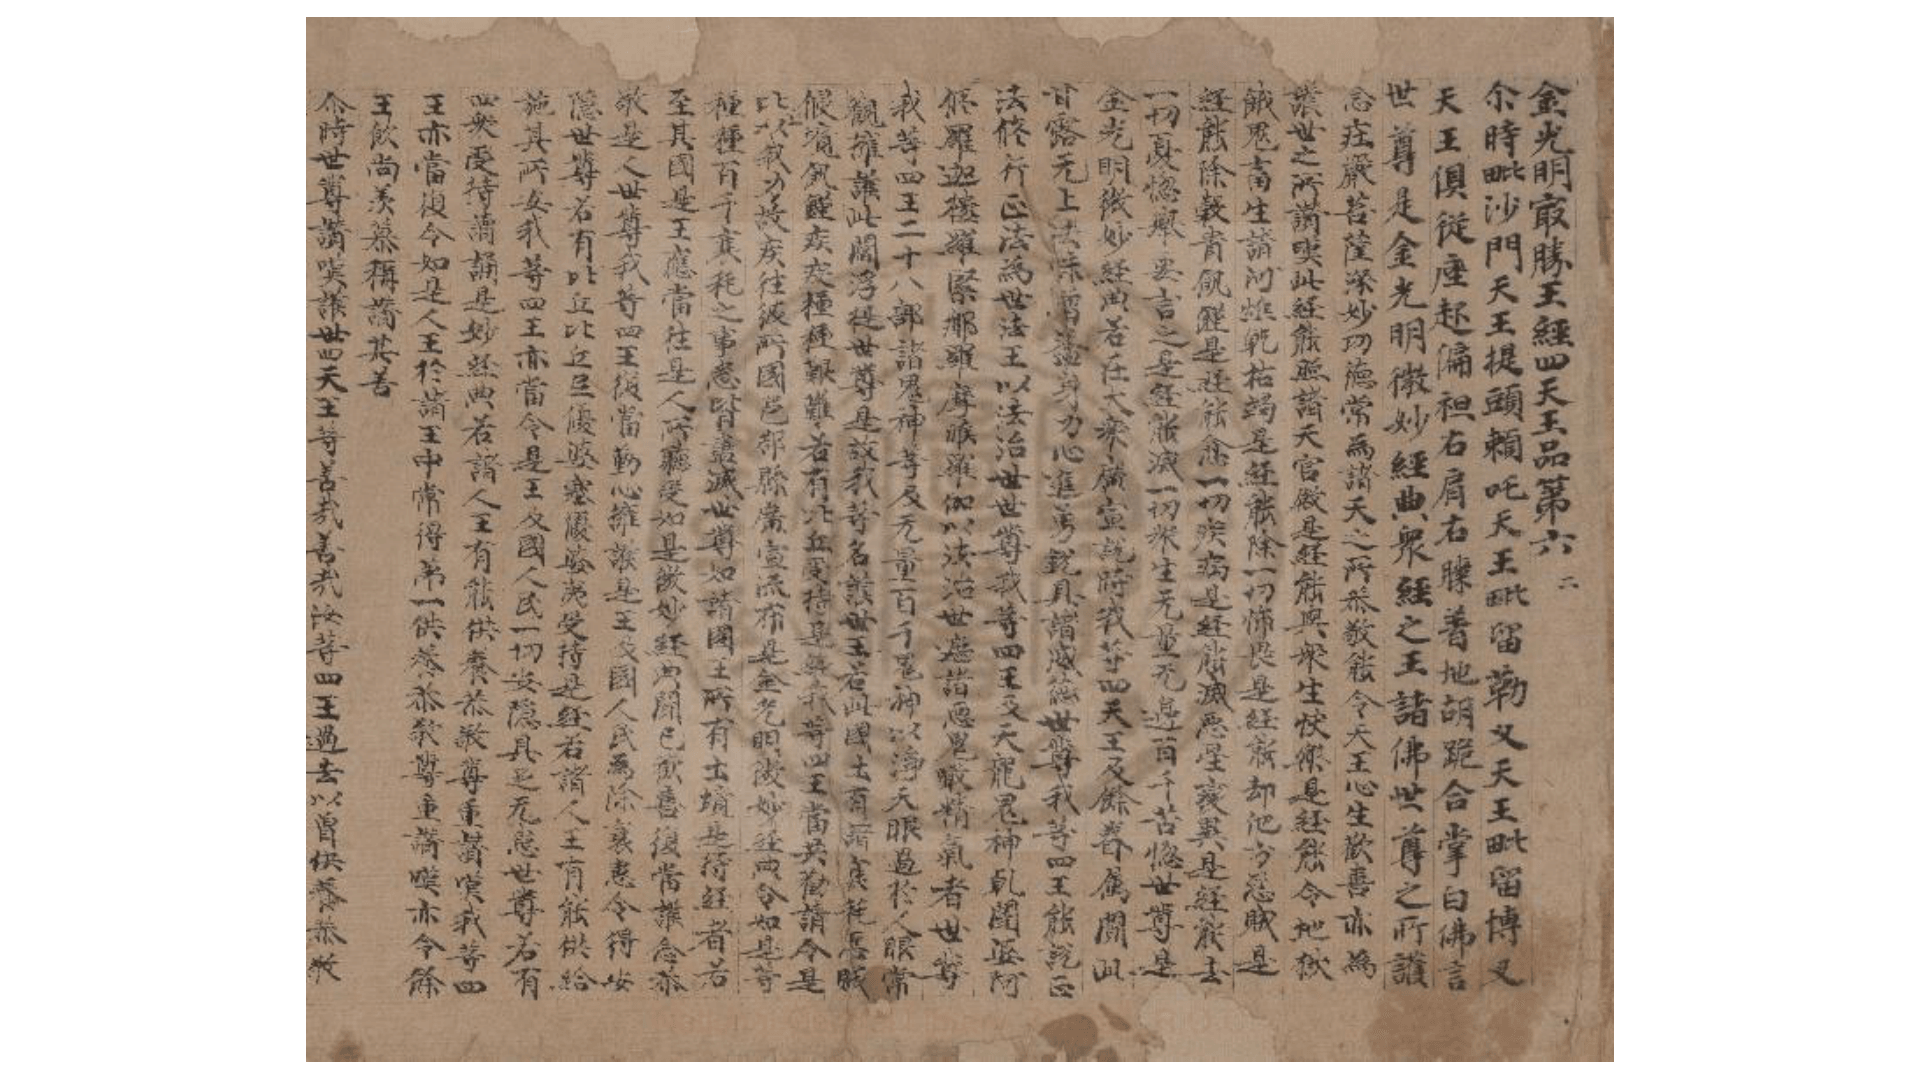 金光明㝡勝王經四天王品第六 二
尒時毗沙門天王提頭賴吒天王毗留勒叉天王毗留博叉
天王俱從座起偏袒右肩右膝著地胡跪合掌白佛言
世尊是金光明微妙經典衆經之王諸佛世尊之所護
念莊嚴菩薩深妙功德常為諸天之所恭敬能令天王心生歡喜亦為
護世之所讚嘆此經能照諸天宮殿是經能與衆生快樂是經能令地獄
餓鬼畜生諸河燋乹枯竭是經能除一切怖畏是經能却他方怨賊是
經能除穀貴飢饉是經能愈一切疾病是經能滅惡星變異是經能去
一切憂惱舉要言之是經能滅一切衆生无量无邊百千苦惱世尊是
金光明微妙經典若在大衆廣宣說時我等四天王及餘眷属聞此
甘露无上法味增益身力心進勇銳具諸威德世尊我等四王能說正
法修行正法為世法王以法治世世尊我等四王及天龍鬼神乹闥婆阿
修羅迦樓羅緊那羅摩睺羅伽以法治世遮諸惡鬼噉精氣者世尊
我等四王二十八部諸鬼神等及无量百千鬼神以淨天眼過於人眼常
觀擁護此閻浮提世尊是故我等名護世王若此國土有諸衰耗怨賊
侵境飢饉疾疫種種艱難若有比丘受持是經我等四王當共勸請令是
比丘以我力故疾往彼所國邑郡縣廣宣流布是金光明微妙經典令如是等
種種百千衰耗之事悉皆盡滅世尊如諸國王所有土境是持經者若
至其國是王應當往是人所聽受如是微妙經典聞已歡喜復當護念恭
敬是人世尊我等四王復當勤心擁護是王及國人民為除衰患令得安
隱世尊若有比丘比丘尼優婆塞優婆夷受持是經若諸人王有能供給
施其所安我等四王亦當令是王及國人民一切安隱具足无患世尊若有
四衆受持讀誦是妙經典若諸人王有能供養恭敬尊重讚嘆我等四
王亦當復令如是人王於諸王中常得弟一供養恭敬尊重讚嘆亦令餘
王欽尚羨慕稱讚其善
尒時世尊讚嘆護世四天王等善哉善哉汝等四王過去以曾供養恭敬